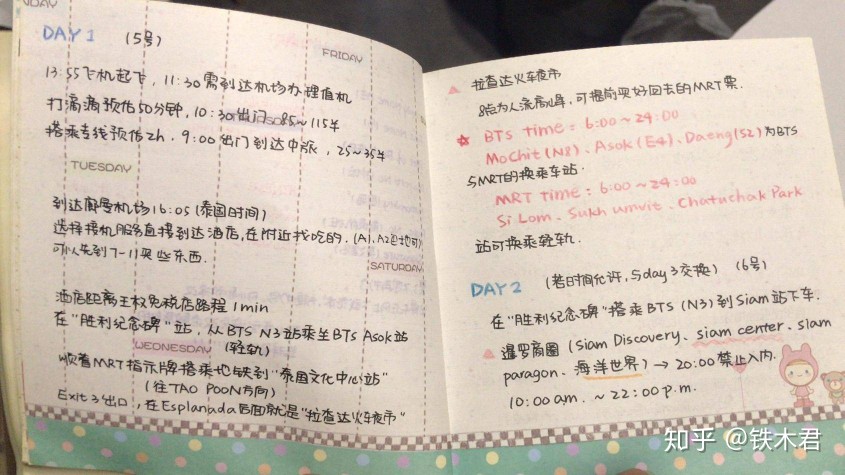 NDAY
DAY 1 (5号)
FRIDAY
13:55飞机起飞, 11:30需到达机场办理值机
打滴滴预估50分钟, 10:30出门 85~115¥
搭乘专线预估2h. 9:00出门到达中旅, 25~35¥
TUESDAY
到达廊曼机场16:05 (泰国时间)
选择接机服务直接到达酒店, 在附近找吃的. (A1. A2巴士也可)
可以先到7-11买些东西.
SATURDAY
酒店距离王权免税店路程1min
在"胜利纪念碑"站, 从BTS N3站乘坐BTS Asok站
WEDNESDAY (轻轨)
顺着MRT指示牌搭乘地铁到"泰国文化中心站"
(往TAO POON方向)
Exit 3出口, 在Esplanada后面就是"拉查达火车夜市"
拉查达火车夜市
8点为人流高峰, 可提前买好回去的MRT票.
BTS Time: 6:00~24:00
Mo Chit (N8). Asok (E4). Daeng (S2)为BTS
与MRT的换乘车站.
MRT time: 6:00~24:00
Si Lom. Sukhumvit. Chatuchak Park
站可换乘轻轨.
DAY 2 (若时间允许, 与day 3交换) (6号)
在"胜利纪念碑"搭乘BTS (N3)到Siam站下车.
暹罗商圈 (Siam Discovery、siam center、siam
paragon、海洋世界) → 20:00禁止入内.
10:00 am. ~ 22:00 p.m.
知乎 @铁木君